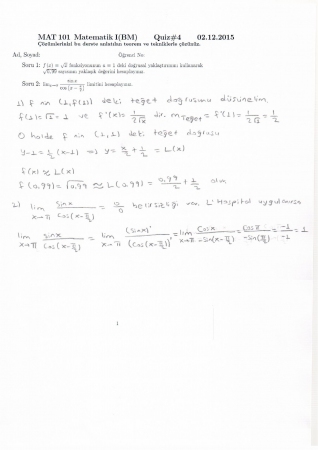 MAT 101 Matematik I(BM) Quiz#4 02.12.2015
Çözümlerinizi bu derste anlatılan teorem ve tekniklerle çözünüz.
Ad, Soyad: Öğrenci No:
Soru 1: f(x) = √x fonksiyonunun x = 1 deki doğrusal yaklaştırımını kullanarak
√0,99 sayısının yaklaşık değerini hesaplayınız.
Soru 2: lim x→π sin x / cos(x − π/2) limitini hesaplayınız.
1) f nin (1, f(1)) deki teğet doğrusunu düşünelim.
f(1) = √1 = 1 ve f'(x) = 1/(2√x) dir. m Teğet = f'(1) = 1/(2√1) = 1/2
O halde f nin (1,1) deki teğet doğrusu
y-1 = 1/2 (x-1) ⇒ y = x/2 + 1/2 = L(x)
f(x) ≈ L(x)
f(0,99) = √0,99 ≈ L(0,99) = 0,99/2 + 1/2 olur
2) lim x→π sinx / cos(x-π/2) = 0/0 belirsizliği var. L'Hospital uygulanırsa
lim x→π sinx / cos(x-π/2) = lim x→π (sinx)' / (cos(x-π/2))' = lim x→π cosx / -sin(x-π/2) = cosπ / -sin(π/2) = -1/-1 = 1
1